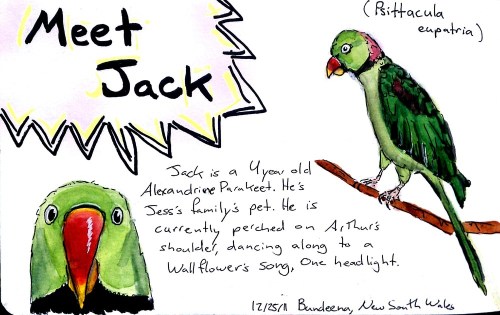 Meet
Jack
(Psittacula
eupatria)
Jack is a 4 year old
Alexandrine Parakeet. He's
Jess's family's pet. He is
currently perched on Arthur's
shoulder, dancing along to a
Wallflower's song, One headlight.
12/25/11 Bundeena, New South Wales